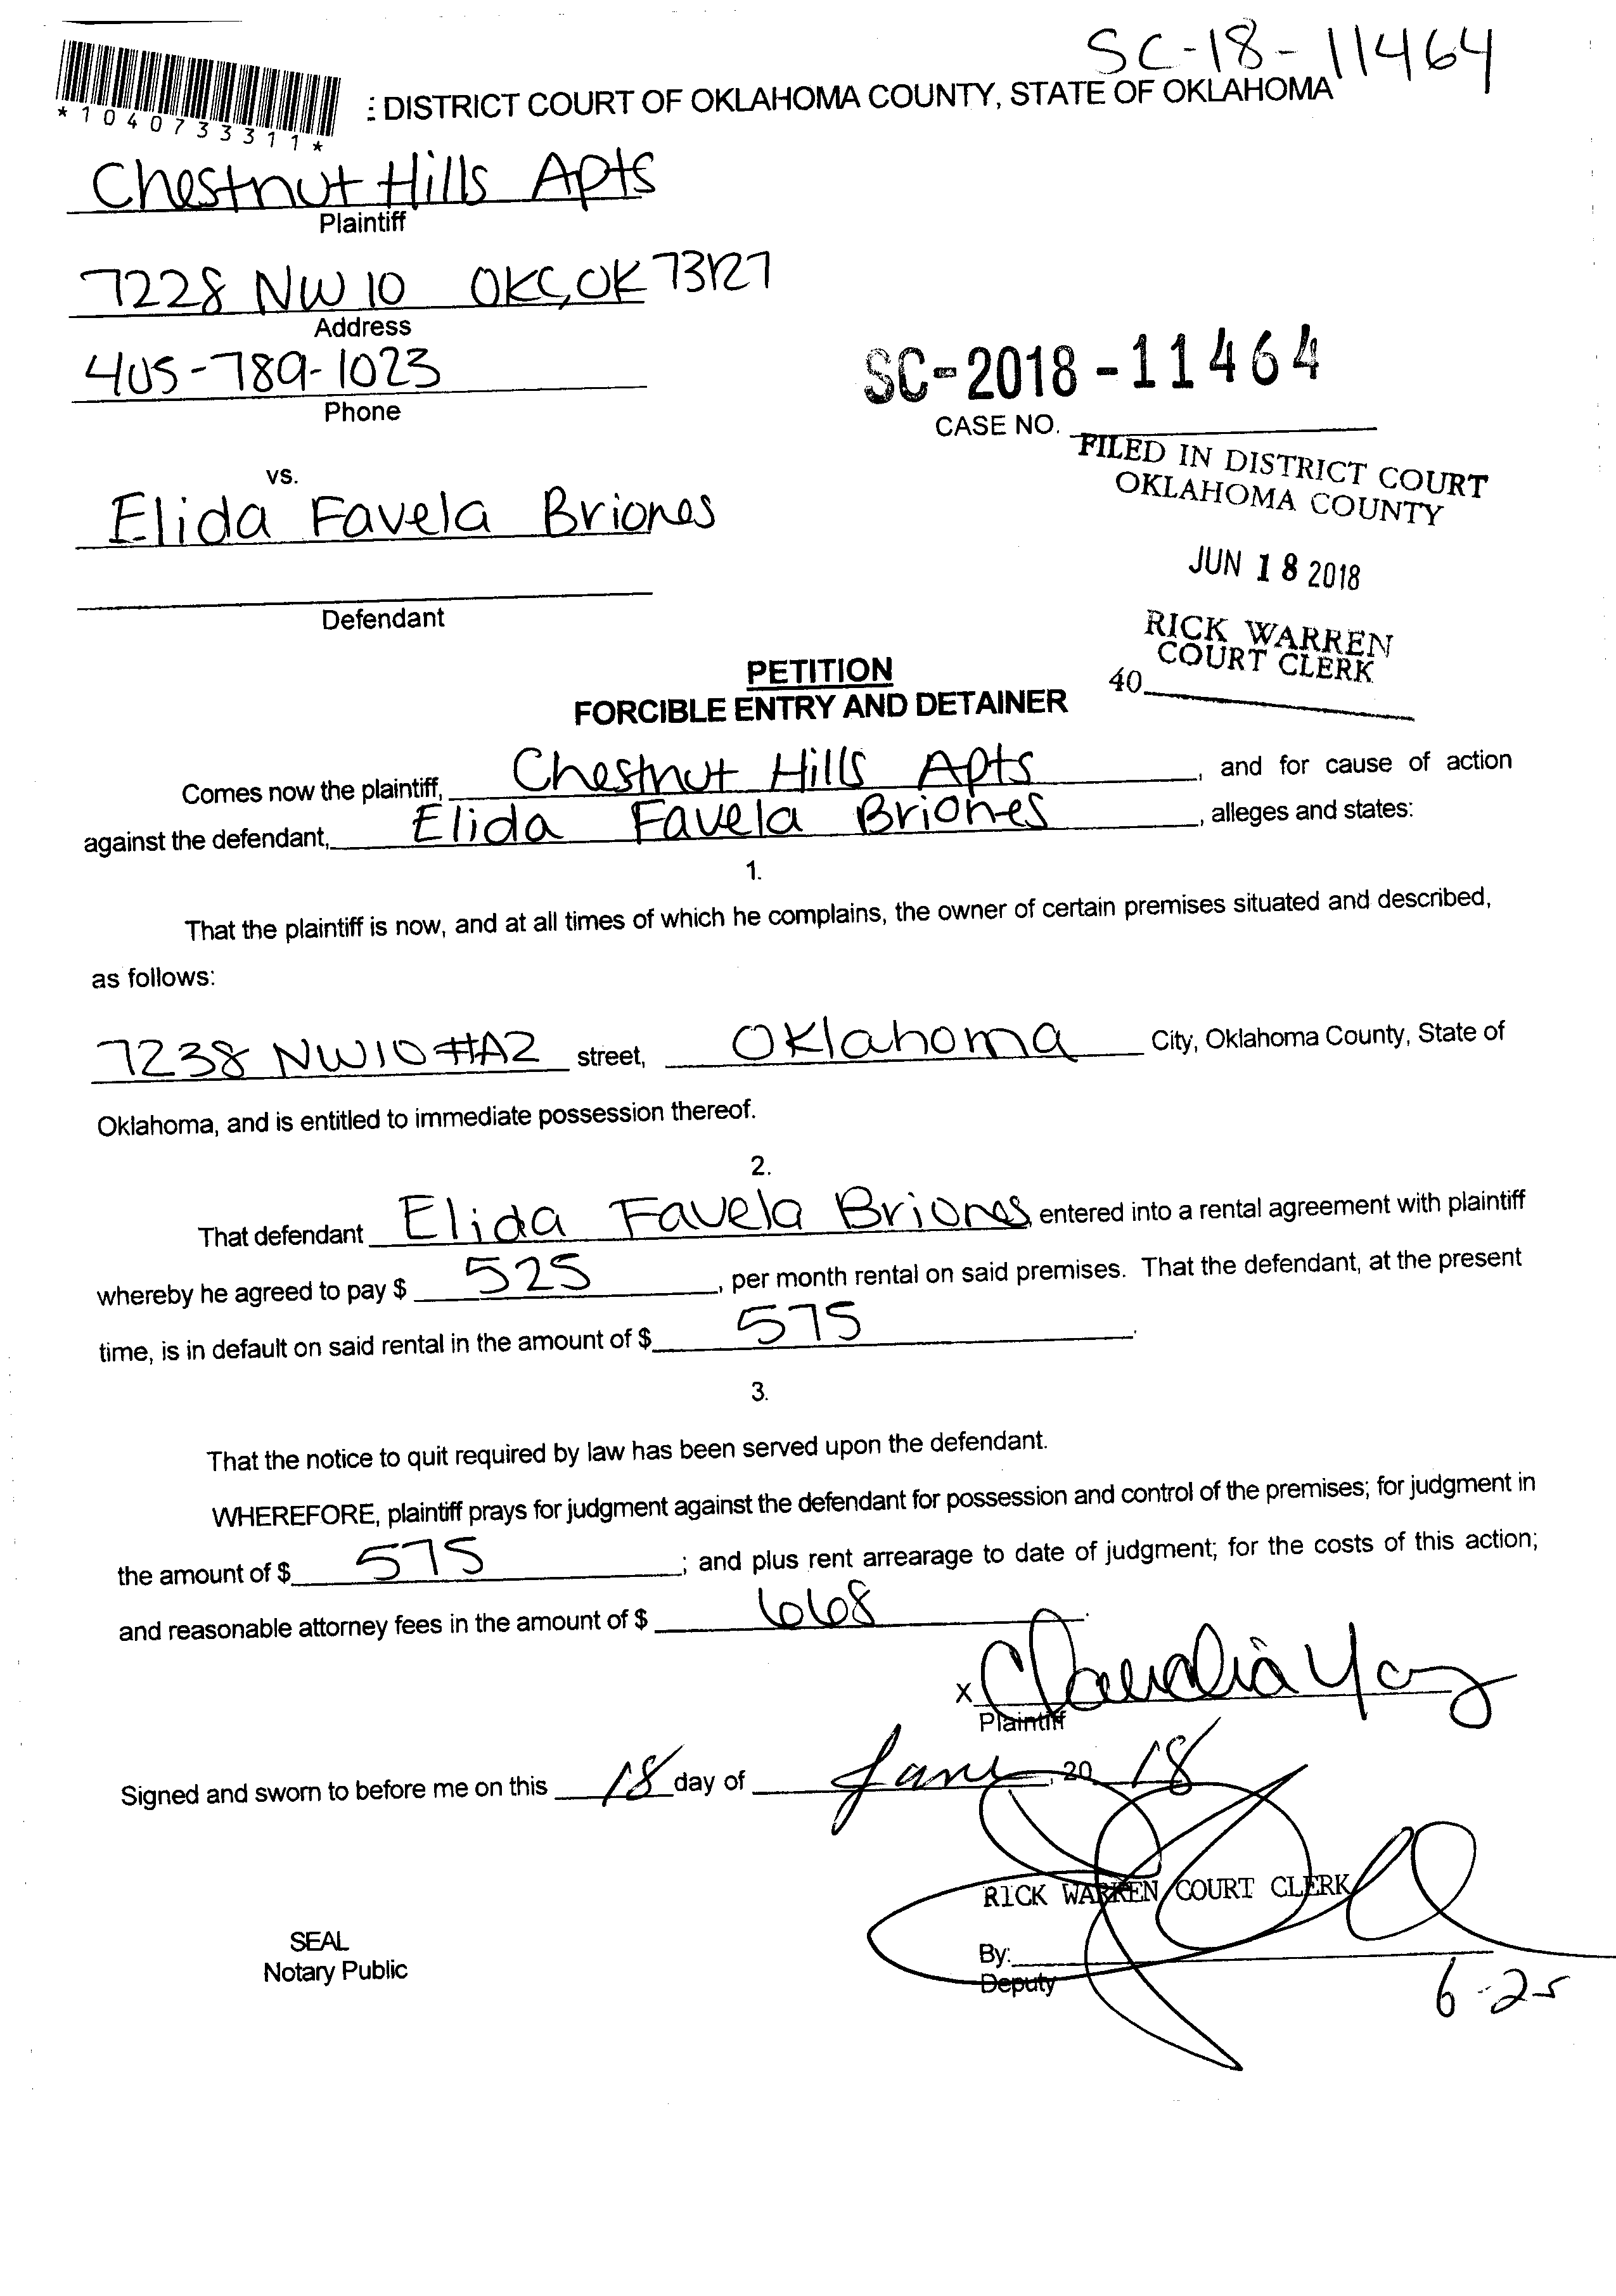 SC-18-11464
: DISTRICT COURT OF OKLAHOMA COUNTY, STATE OF OKLAHOMA
*1040733311*
Chestnut Hills Apts
Plaintiff
7228 NW 10 OKC, OK 73127
Address
405-789-1023
Phone
SC-2018-11464
CASE NO.
FILED IN DISTRICT COURT
OKLAHOMA COUNTY
vs.
Elida Favela Briones
JUN 18 2018
Defendant
RICK WARREN
COURT CLERK
40
PETITION
FORCIBLE ENTRY AND DETAINER
Comes now the plaintiff, Chestnut Hills Apts, and for cause of action
against the defendant, Elida Favela Briones, alleges and states:
1.
That the plaintiff is now, and at all times of which he complains, the owner of certain premises situated and described,
as follows:
7238 NW10 #A2 street, Oklahoma City, Oklahoma County, State of
Oklahoma, and is entitled to immediate possession thereof.
2.
That defendant Elida Favela Briones entered into a rental agreement with plaintiff
whereby he agreed to pay $ 525, per month rental on said premises. That the defendant, at the present
time, is in default on said rental in the amount of $ 575.
3.
That the notice to quit required by law has been served upon the defendant.
WHEREFORE, plaintiff prays for judgment against the defendant for possession and control of the premises; for judgment in
the amount of $ 575; and plus rent arrearage to date of judgment; for the costs of this action;
and reasonable attorney fees in the amount of $ 668.
x Claudia
Plaintiff
Signed and sworn to before me on this 18 day of June, 20 18
RICK WARREN COURT CLERK
SEAL
Notary Public
By:
Deputy
6-25